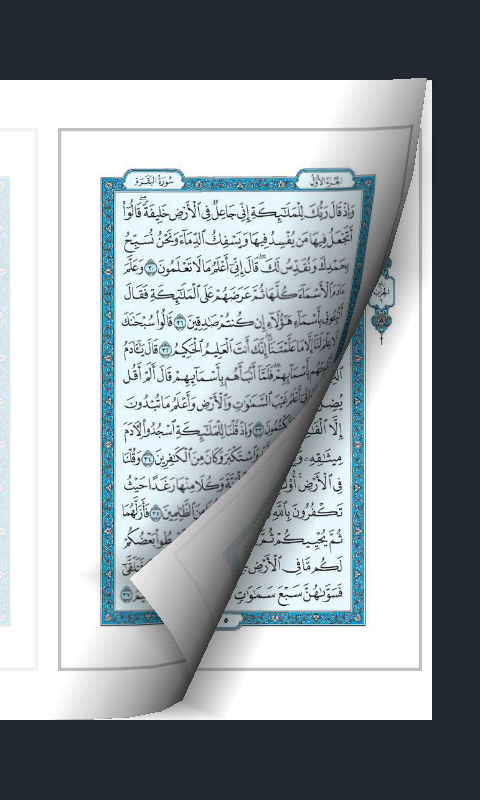 سُورَةُ البَقَرَةِ الجُزءُ الأَوَّلُ
وَإِذْ قَالَ رَبُّكَ لِلْمَلَٰٓئِكَةِ إِنِّي جَاعِلٌ فِي ٱلْأَرْضِ خَلِيفَةً ۖ قَالُوٓا۟
أَتَجْعَلُ فِيهَا مَن يُفْسِدُ فِيهَا وَيَسْفِكُ ٱلدِّمَآءَ وَنَحْنُ نُسَبِّحُ
بِحَمْدِكَ وَنُقَدِّسُ لَكَ ۖ قَالَ إِنِّيٓ أَعْلَمُ مَا لَا تَعْلَمُونَ ٣٠ وَعَلَّمَ
ءَادَمَ ٱلْأَسْمَآءَ كُلَّهَا ثُمَّ عَرَضَهُمْ عَلَى ٱلْمَلَٰٓئِكَةِ فَقَالَ
أَنۢبِـُٔونِي بِأَسْمَآءِ هَٰٓؤُلَآءِ إِن كُنتُمْ صَٰدِقِينَ ٣١ قَالُوا۟ سُبْحَٰنَكَ
لَا عِلْمَ لَنَآ إِلَّا مَا عَلَّمْتَنَآ ۖ إِنَّكَ أَنتَ ٱلْعَلِيمُ ٱلْحَكِيمُ ٣٢ قَالَ يَٰٓـَٔادَمُ
أَنۢبِئْهُم بِأَسْمَآئِهِمْ ۖ فَلَمَّآ أَنۢبَأَهُم بِأَسْمَآئِهِمْ قَالَ أَلَمْ أَقُل
إِنِّيٓ أَعْلَمُ غَيْبَ ٱلسَّمَٰوَٰتِ وَٱلْأَرْضِ وَأَعْلَمُ مَا تُبْدُونَ
إِلَّا ٣٣ وَإِذْ قُلْنَا لِلْمَلَٰٓئِكَةِ ٱسْجُدُوا۟ لِـَٔادَمَ
مِيثَٰقِهِۦ وَٱسْتَكْبَرَ وَكَانَ مِنَ ٱلْكَٰفِرِينَ ٣٤ وَقُلْنَا
فِي ٱلْأَرْضِ ۚ وَكُلَا مِنْهَا رَغَدًا حَيْثُ
تَكْفُرُونَ بِٱللَّهِ ٱلظَّٰلِمِينَ ٣٥ فَأَزَلَّهُمَا
ثُمَّ يُحْيِيكُمْ ثُمَّ بَعْضُكُمْ
لَكُم مَّا فِي ٱلْأَرْضِ فَتَلَقَّىٰٓ
فَسَوَّىٰهُنَّ سَبْعَ سَمَٰوَٰتٍ ٣٧
٥